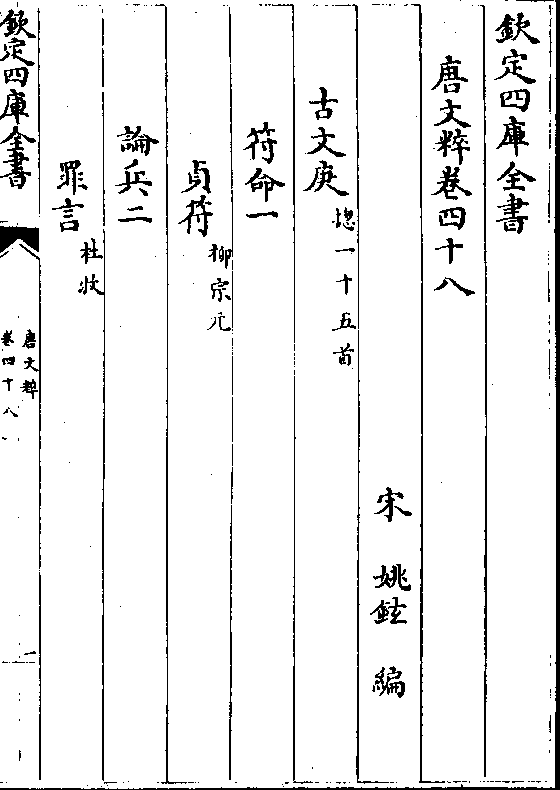 欽定四庫全書
唐文粹卷四十八
宋 姚鉉 編
古文庚 惣一十五首
符命一
貞符 柳宗元
論兵二
罪言 杜牧
欽定四庫全書
唐文粹
卷四十八
一